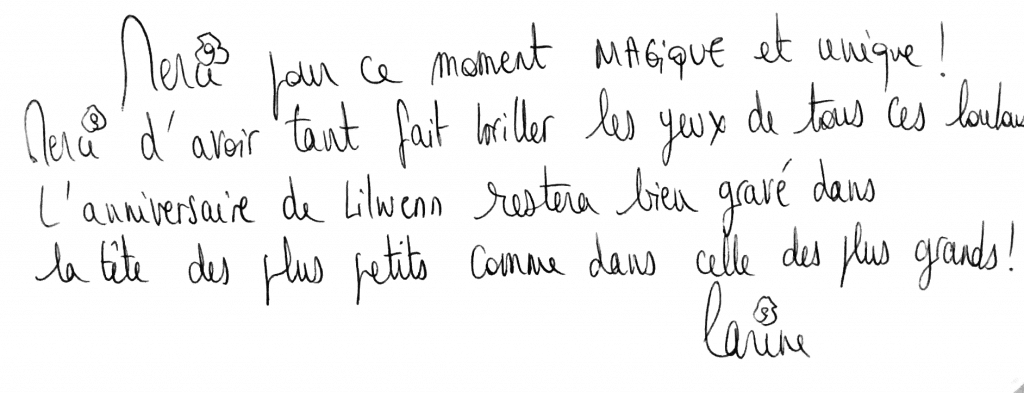 Merci pour ce moment MAGiQUE et unique !
Merci d'avoir tant fait briller les yeux de tous ces loulous
L'anniversaire de Lilwenn restera bien gravé dans
la tête des plus petits comme dans celle des plus grands !
Carine